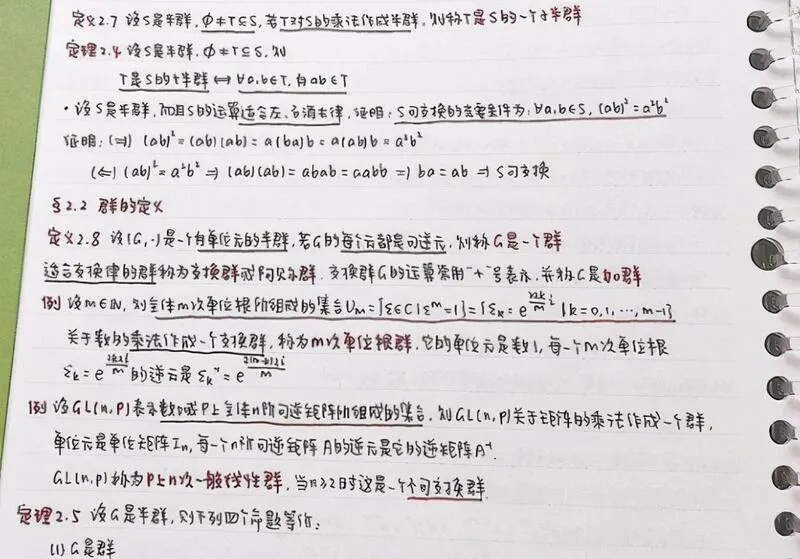 定义2.7 设S是半群,∅≠T⊆S,若T对S的乘法作成半群,则称T是S的一个子半群
定理2.4 设S是半群,∅≠T⊆S,则
T是S的子半群 ⟺ ∀a,b∈T,有ab∈T
·设S是半群,而且S的运算适合左、右消去律,证明:S可交换的充要条件为:∀a,b∈S,(ab)²=a²b²
证明:(⇒) (ab)²=(ab)(ab)=a(ba)b=a(ab)b=a²b²
(⇐) (ab)²=a²b² ⇒ (ab)(ab)=abab=aabb ⇒ ba=ab ⇒ S可交换
§2.2 群的定义
定义2.8 设(G,·)是一个有单位元的半群,若G的每个元都是可逆元,则称G是一个群
适合交换律的群称为交换群或阿贝尔群.交换群G的运算常用"+"号表示,并称G是加群
例 设m∈ℕ,则全体m次单位根所组成的集合Uₘ={ε∈C|εᵐ=1}={εₖ=e^(2kπ/m i)|k=0,1,…,m-1}
关于数的乘法作成一个交换群,称为m次单位根群,它的单位元是数1,每一个m次单位根
εₖ=e^(2kπi/m)的逆元是εₖ⁻¹=e^(2(m-k)πi/m)
例 设GL(n,P)表示数域P上全体n阶可逆矩阵所组成的集合,则GL(n,P)关于矩阵的乘法作成一个群,
单位元是单位矩阵Iₙ,每一个n阶可逆矩阵A的逆元是它的逆矩阵A⁻¹.
GL(n,P)称为P上n次一般线性群,当n≥2时这是一个不可交换群.
定理2.5 设G是半群,则下列四个命题等价:
(1) G是群